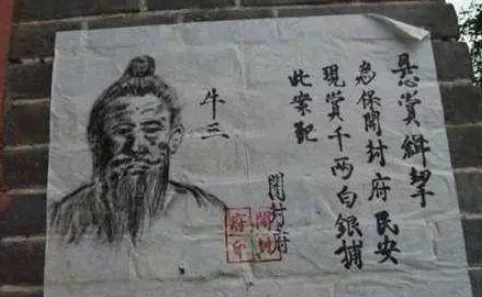 懸賞緝拏
為保開封府民安
現賞千两白銀捕
此案犯
開封府
牛三
開封
府印